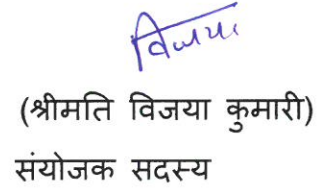 विजया
(श्रीमति विजया कुमारी)
संयोजक सदस्य